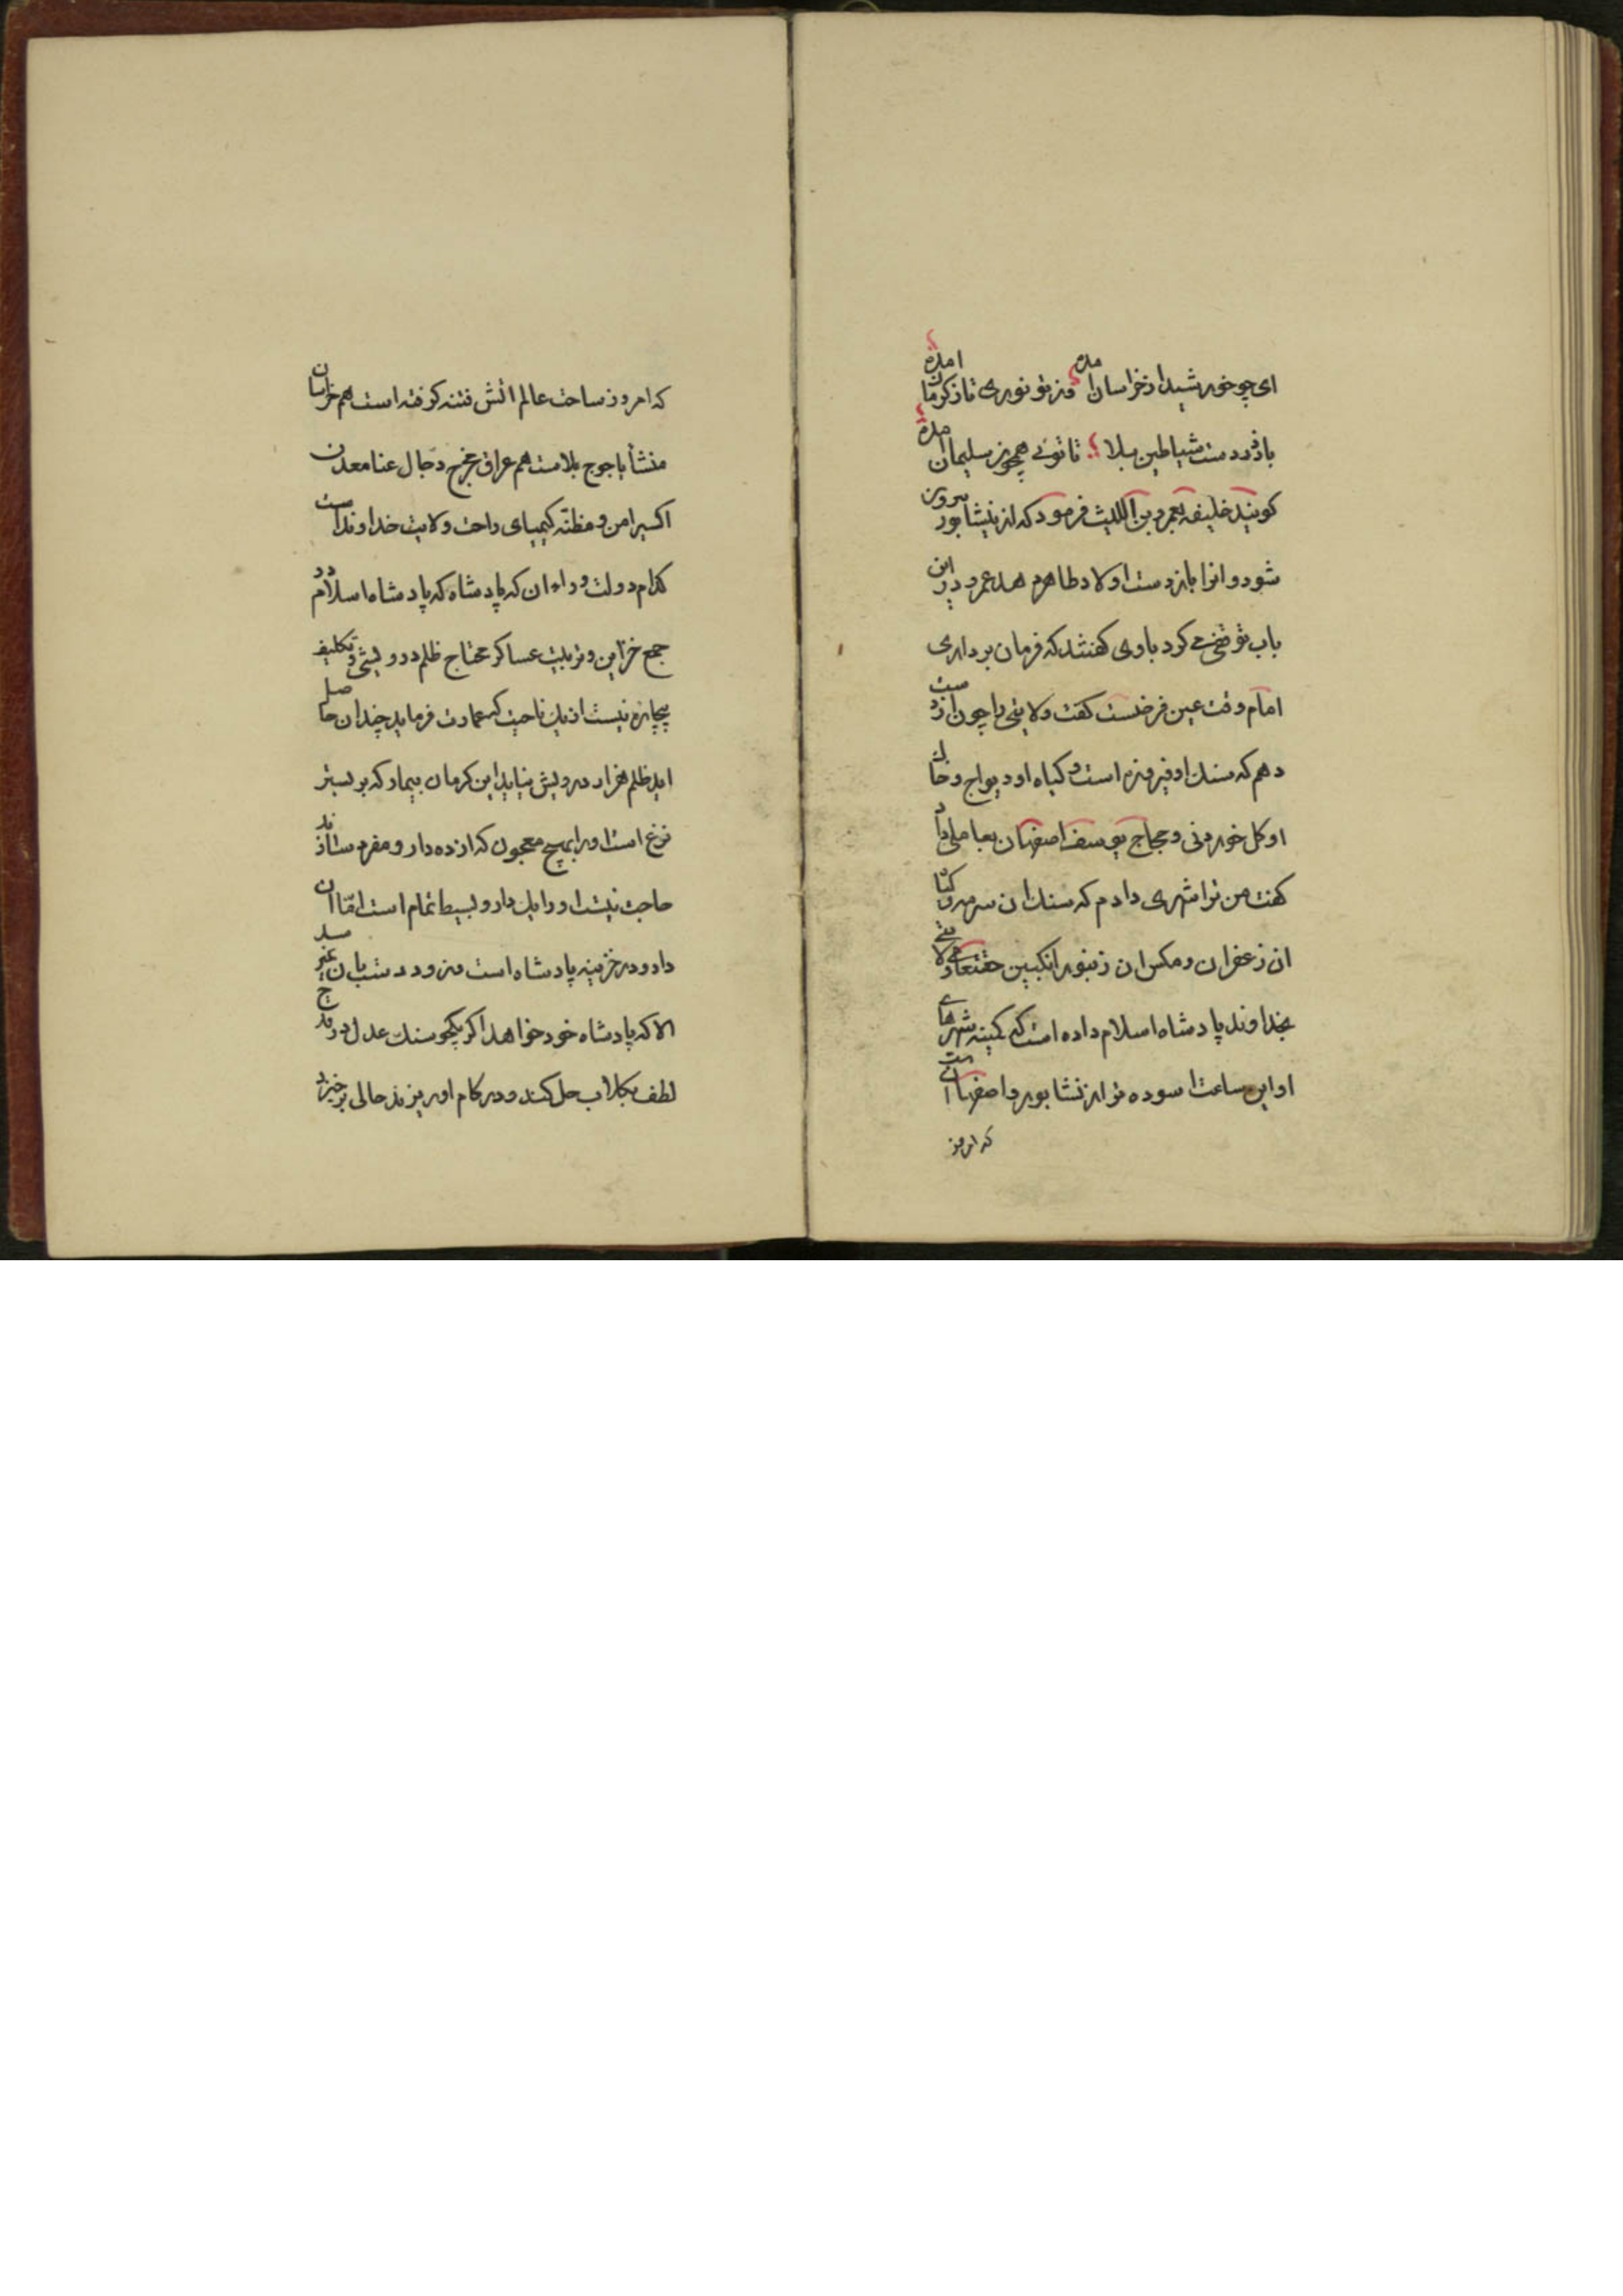 ای چو خورشید از خراسان امده وز تو نوری تاز کرمان امده
باز در دست شیاطین بلا تا توئی همچون سلیمان امده
کویند خلیفه بعمرو بن اللیث فرمود که از نیشابور بیرون
شود و انرا باز دست اولاد طاهر دهد عمرو در این
باب توقفی می کرد باوی کفتند که فرمان برداری
امام وقت عین فرضست کفت ولایتی را چون از دست
دهم که سنك او فیروزه است و کیاه او دیواج و خاك
او کل خوردنی و حجاج یوسف اصفهان بعاملی داد
کفت من ترا شهری دادم که سنك ان سرمه و کیا
ان زعفران و مکس ان زنبور انکبین حقتعالی ولایتی
بخداوند پادشاه اسلام داده است که کمینه شهرهای
او این ساعت اسوده تر از نشابور و اصفهانست
که امروز
که امروز ساحت عالم اتش فتنه کرفته است هم خراسان
منشأ یاجوج بلاست هم عراق مخرج دجال عنا معدن
اکسیر امن و مظنّه کیمیای راحت ولایت خداوندست
کدام دولت ورای ان که پادشاه که پادشاه اسلام در
جمع خزاین و تربیت عساکر محتاج ظلم درویشی و تکلیف
بیچاره نیست از یك ناحیت که عمارت فرماید چندان حاصل
اید ظلم هزار درویش نیاید این کرمان بیمار که بر بستر
نزع است او را بهیچ معجون که از ده دارو مفرد سازند
حاجت نیست او را یك دارو بسیط تمام است امّا ان
دارو در خزینه پادشاه است و نرود دست بان
الا که پادشاه خود خواهد اکر یکجو سنك عدل در قدح
لطف بکلاب حل کند و در کام او ریزند حالی برخیزد